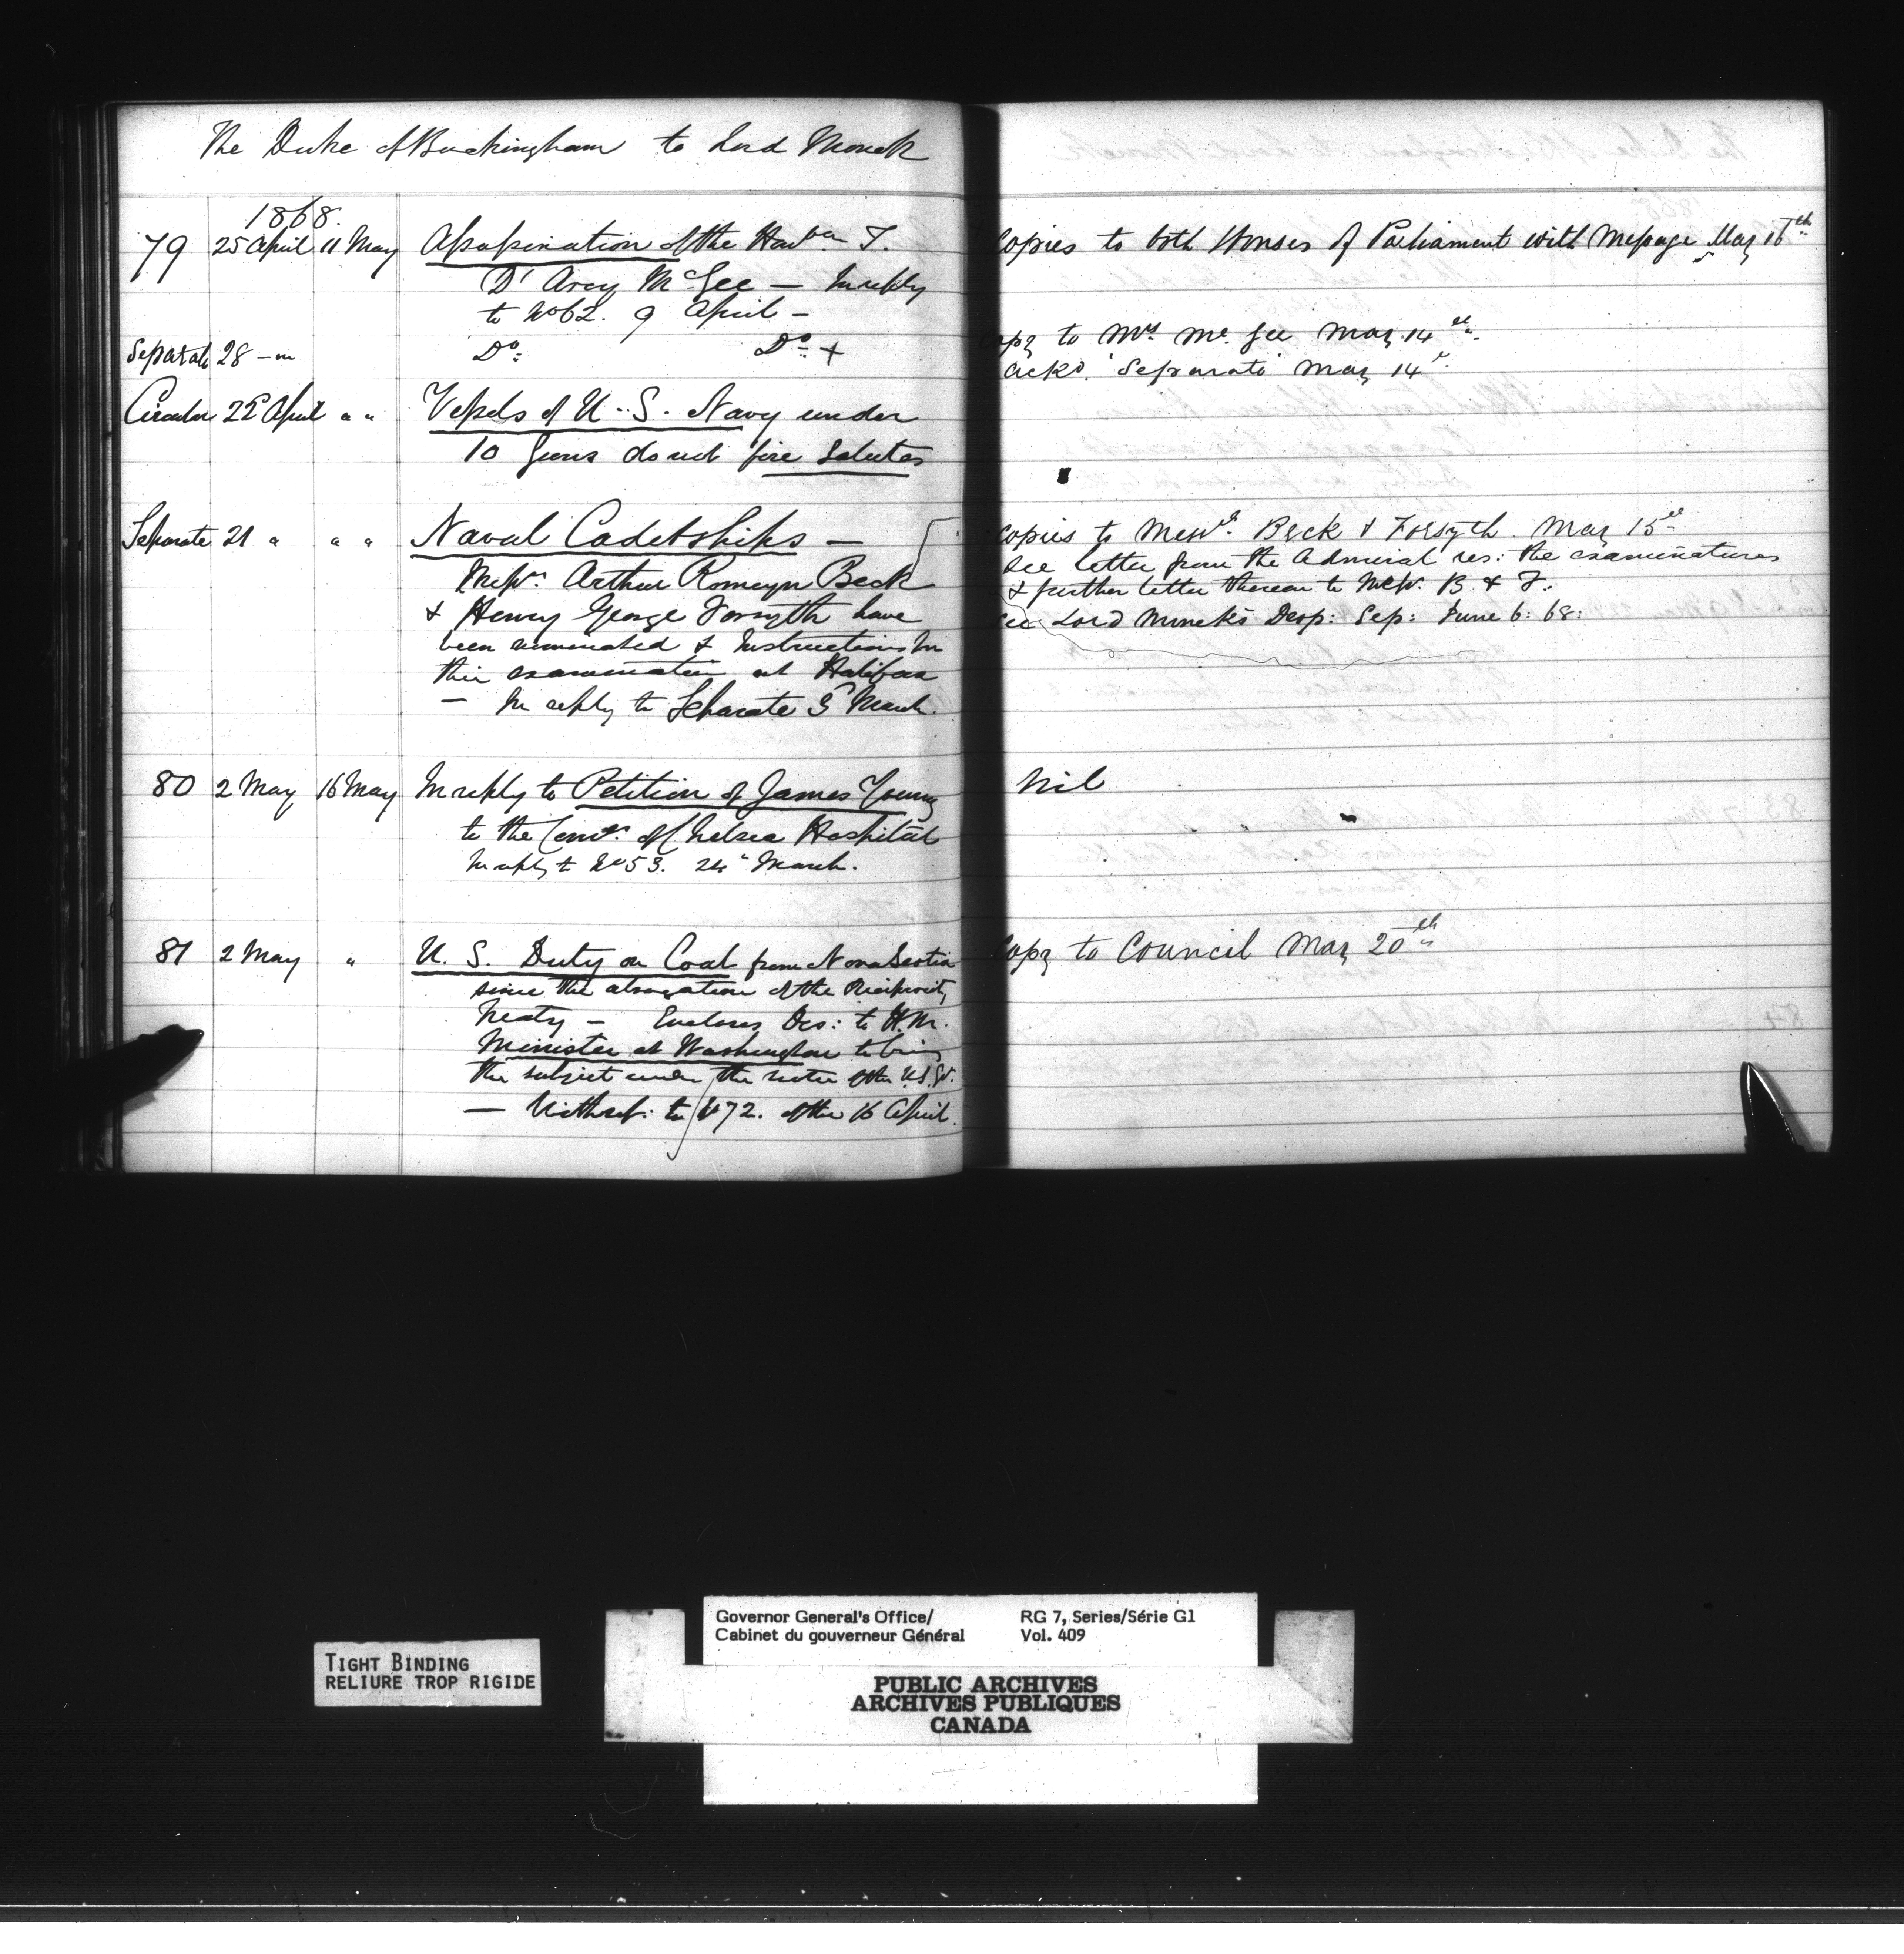 The Duke of Buckingham to Lord Monck
1868.
79 25 April 11 May Assassination of the Hon^ble T.
D'Arcy McGee — In reply
to No 62. 9 April —
Separate 28 — " Do: Do: +
Circular 22 April " " Vessels of U. S. Navy under
10 Guns do not fire Salutes
Separate 21 " " " Naval Cadetships —
Messrs. Arthur Romeyn Beck
& Henry George Forsyth have
been nominated & Instructions for
their examination at Halifax
— In reply to Separate 5 March.
80 2 May 16 May In reply to Petition of James Young
to the Comrs. of Chelsea Hospital
In reply to No 53. 24 March.
81 2 May " U. S. Duty on Coal from Nova Scotia
since the abrogation of the Reciprocity
Treaty — Encloses Des: to H.M.
Minister at Washington to bring
the subject under the notice of the U.S. Gt.
— With ref: to No 72. of the 16 April.
Copies to both Houses of Parliament with Message May 16th
Copy to Mrs. Mc. Gee May 14th.
Ackd. 'Separate' May 14th
Copies to Messrs. Beck & Forsyth. May 15th
See letter from the Admiral res: the examinations
& further letter thereon to Messrs. B. & F.
See Lord Monck's Desp: Sep: June 6: 68:
Nil
Copy to Council May 20th
TIGHT BINDING
RELIURE TROP RIGIDE
Governor General's Office/ RG 7, Series/Série G1
Cabinet du gouverneur Général Vol. 409
PUBLIC ARCHIVES
ARCHIVES PUBLIQUES
CANADA